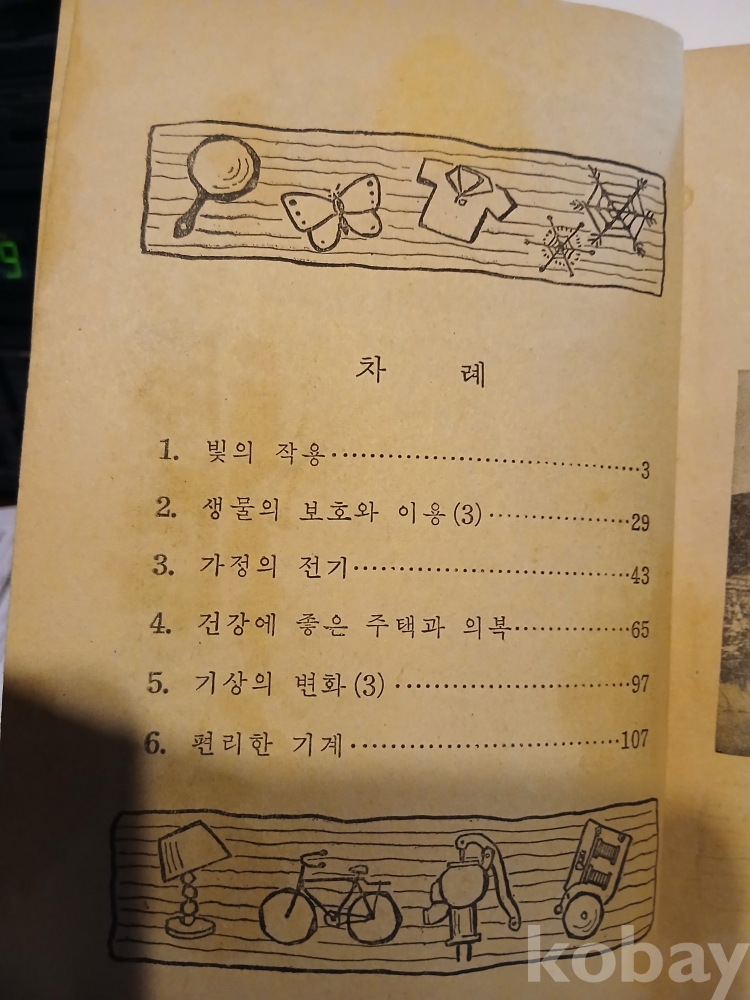 차 례
1. 빛의 작용 3
2. 생물의 보호와 이용(3) 29
3. 가정의 전기 43
4. 건강에 좋은 주택과 의복 65
5. 기상의 변화(3) 97
6. 편리한 기계 107
kobay
9